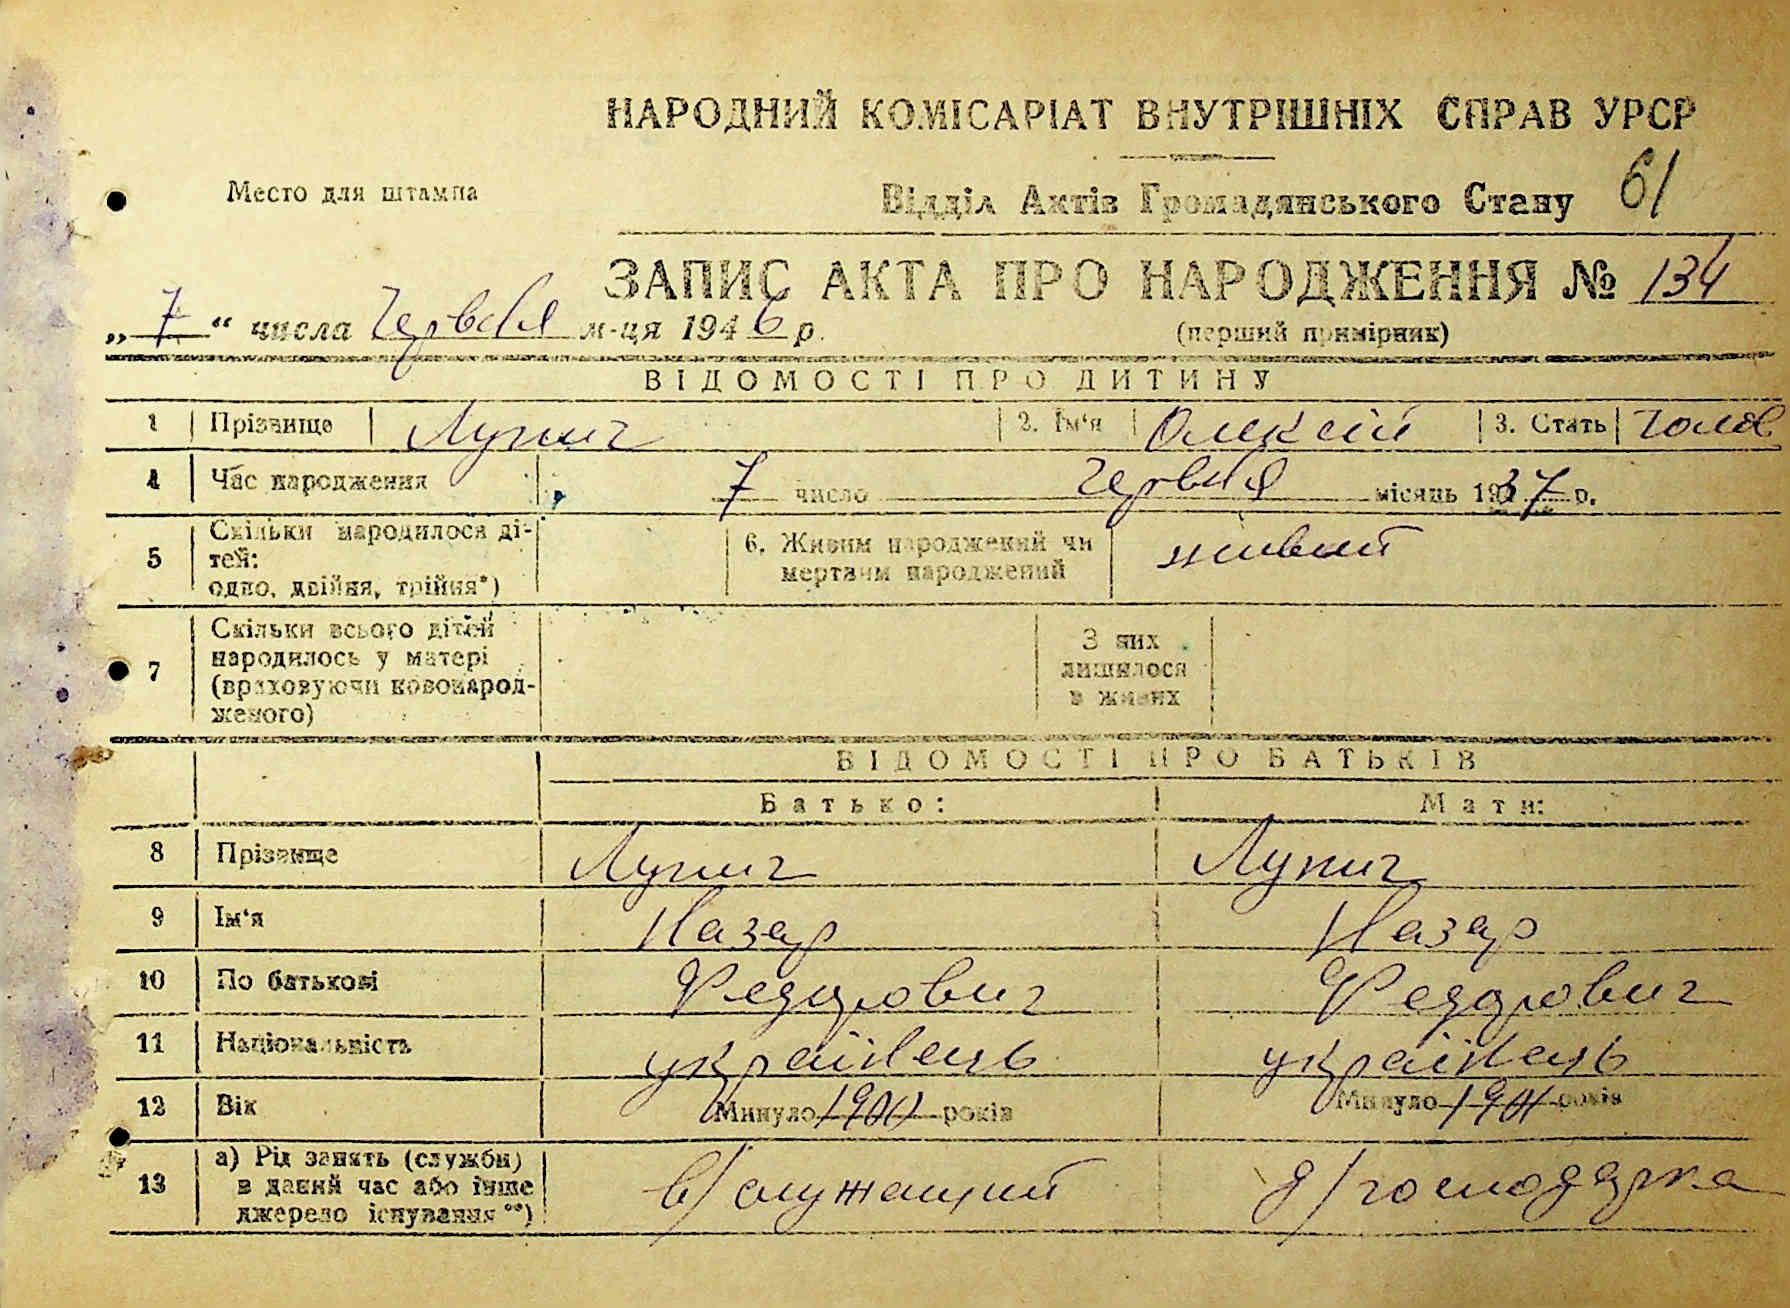 НАРОДНИЙ КОМІСАРІАТ ВНУТРІШНІХ СПРАВ УРСР
Место для штампа
Відділ Актів Громадянського Стану 61
ЗАПИС АКТА ПРО НАРОДЖЕННЯ № 134
„ 7 “ числа Червня м-ця 1946 р.
(перший примірник)
ВІДОМОСТІ ПРО ДИТИНУ
1 Прізвище Лупич 2. Ім'я Олексій 3. Стать чолов
4 Час народження 7 число Червня місяць 1937 р.
5 Скільки народилося ді-
тей:
одно, двійня, трійня*)
6. Живим народжений чи
мертвим народжений
живий
7 Скільки всього дітей
народилось у матері
(враховуючи новонарод-
женого)
З них
лишилося
в живих
ВІДОМОСТІ ПРО БАТЬКІВ
Батько: Мати:
8 Прізвище Лупич Лупич
9 Ім'я Назар Назар
10 По батькові Федорович Федорович
11 Національність українець українець
12 Вік Минуло років Минуло років
13 а) Рід занять (служби)
в даний час або інше
джерело існування**)
в/служащий д/господарка